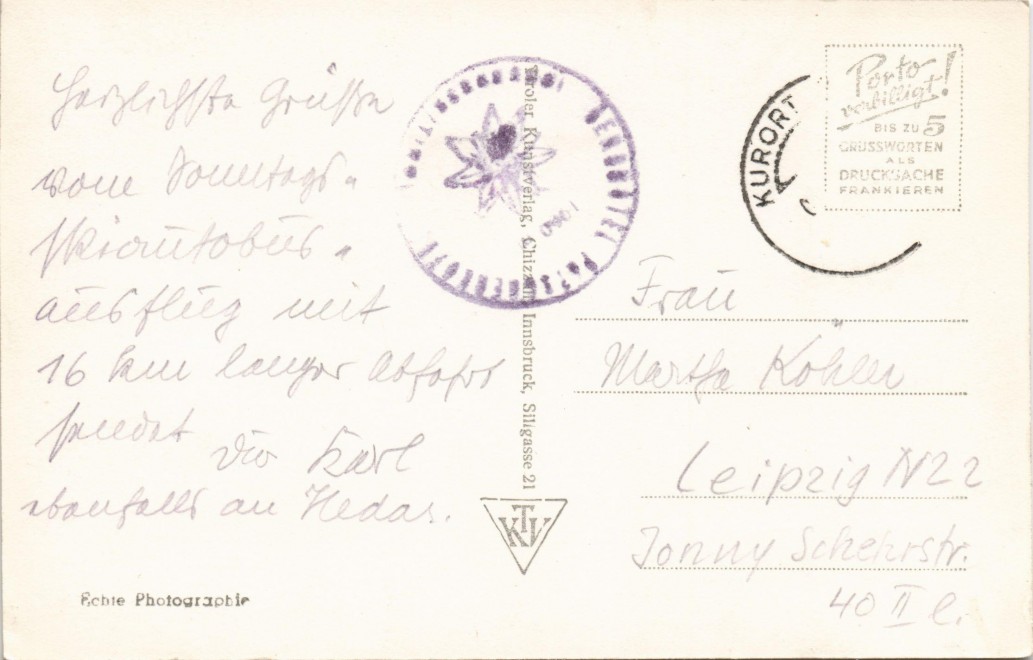 Herzlichste Grüße
vom Sonntags-
skiautobus-
ausflug mit
16 km langer Abfahrt
sendet Dir Karl
ebenfalls an Hedas.
Echte Photographie
Tiroler Kunstverlag, Chizzali Innsbruck, Sillgasse 21
KTV
BERGHOTEL PATSCHERKOFL
KURORT
Porto
verbilligt!
BIS ZU 5
GRUSSWORTEN
ALS
DRUCKSACHE
FRANKIEREN
Frau
Martha Köhler
Leipzig N22
Jonny Schehrstr.
40 II l.